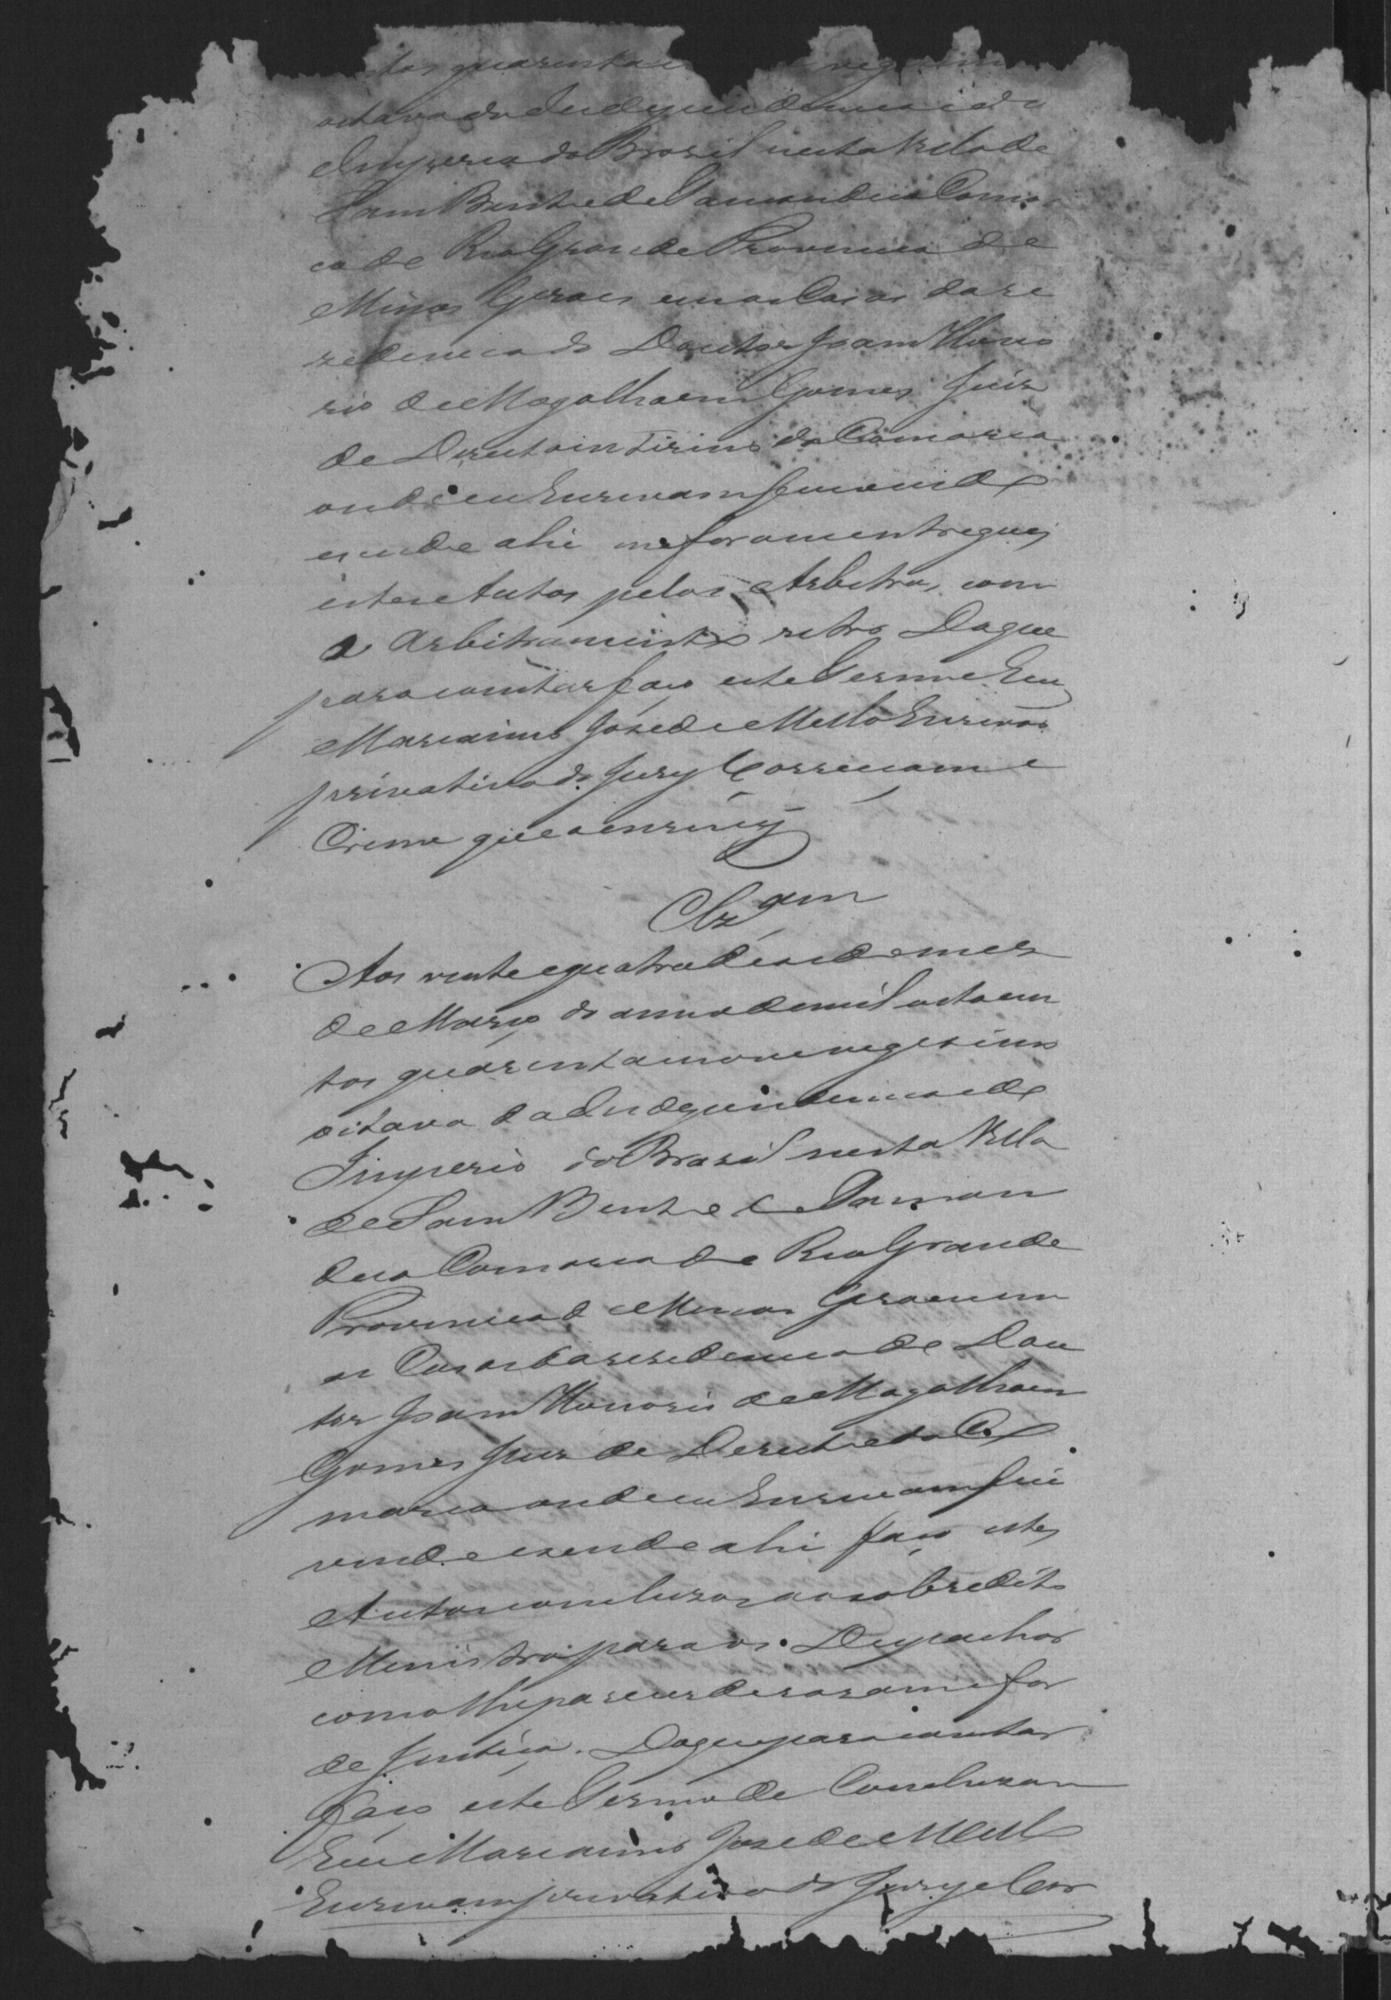 tos quarenta e
oitavo da Independencia e do
Imperio do Brazil nesta Villa de
Sam Bento de Tamandua Comar
ca de Rio Grande Provincia de
Minas Geraes em as Casas da re
zidencia do Doutor Joam Hono
rio de Magalhaens Gomes Juis
de Direito interino da Comarca
onde eu Escrivam fui vindo
e sendo ahi me foram entregues
estes Autos pelos Arbitros com
o Arbitramento retro Do que
para constar faço este Termo Eu
Marciano José de Mello Escrivão
privativo do Jury Correicam e
Crime que o escrevy
Clzam
Aos vinte e quatro dias do mes
de Março do anno de mil oitocen
tos quarenta e nove vigesimo
oitavo da Independencia e do
Imperio do Brazil nesta Villa
de Sam Bento de Taman
dua Comarca do Rio Grande
Provincia de Minas Geraes em
as Casas da rezidencia do Dou
tor Joam Honorio de Magalhaens
Gomes Juis de Direito da Co
marca onde eu Escrivam fui
vindo e sendo ahi faço estes
Autos concluzos ao sobredito
Ministro para os Despachar
como lhe parecer de rasam e for
de Justiça. Do que para constar
faço este Termo de Concluzam
Eu Marciano José de Mello
Escrivam privativo do Jury e Cor